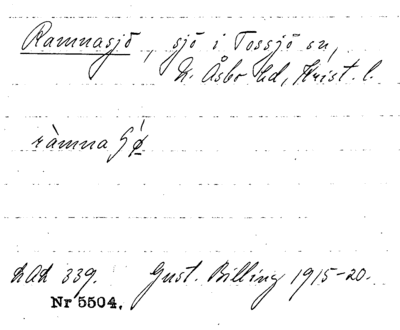 Ramnasjö, sjö i Tossjö sn,
N. Åsbo hd, Krist. l.
ràmna
LAL 339. Gust. Billing 1915-20.
Nr 5504.